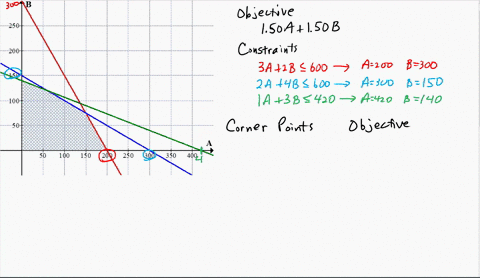 Objective
1.50A + 1.50B
Constraints
3A + 2B ≤ 600 → A=200 B=300
2A + 4B ≤ 600 → A=300 B=150
1A + 3B ≤ 420 → A=420 B=140
Corner Points Objective
300 B
250
200
150
100
50
A
50 100 150 200 250 300 350 400